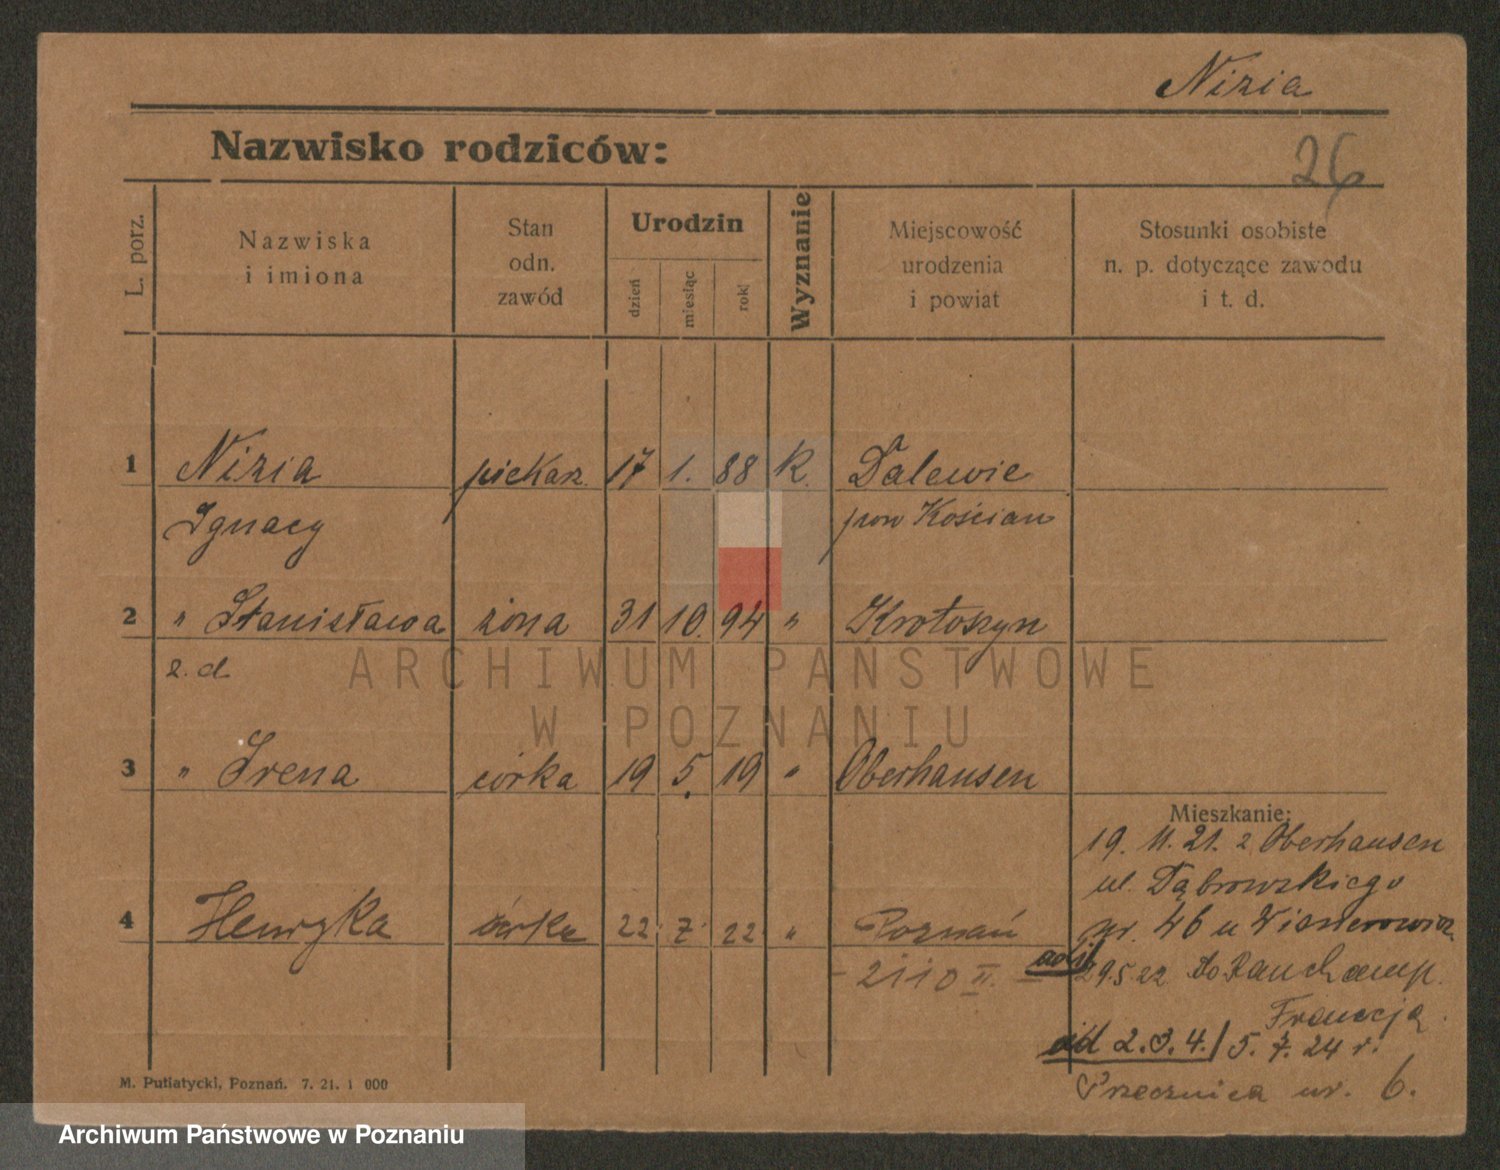 Nizia
Nazwisko rodziców:
26
L. porz.
Nazwiska
i imiona
Stan
odn.
zawód
Urodzin
dzień
miesiąc
rok
Wyznanie
Miejscowość
urodzenia
i powiat
Stosunki osobiste
n. p. dotyczące zawodu
i t. d.
1 Nizia piekarz. 17 1. 88 k. Dalewie
Ignacy pow Kościan
2 " Stanisława żona 31 10. 94 " Krotoszyn
z. d
3 " Irena córka 19 5. 19 " Oberhausen
Mieszkanie:
19. 11. 21. z Oberhausen
ul. Dąbrowskiego
4 Henryka córka 22. 7. 22 " Poznań
nr. 46 u
- 2110 II. -
ad 1/ 29.5.22 do Francja
od 2.3.4./ 5. 7. 24 r.
Przecznica nr. 6.
M. Putiatycki, Poznań. 7. 21. 1 000
ARCHIWUM PAŃSTWOWE
W POZNANIU
Archiwum Państwowe w Poznaniu